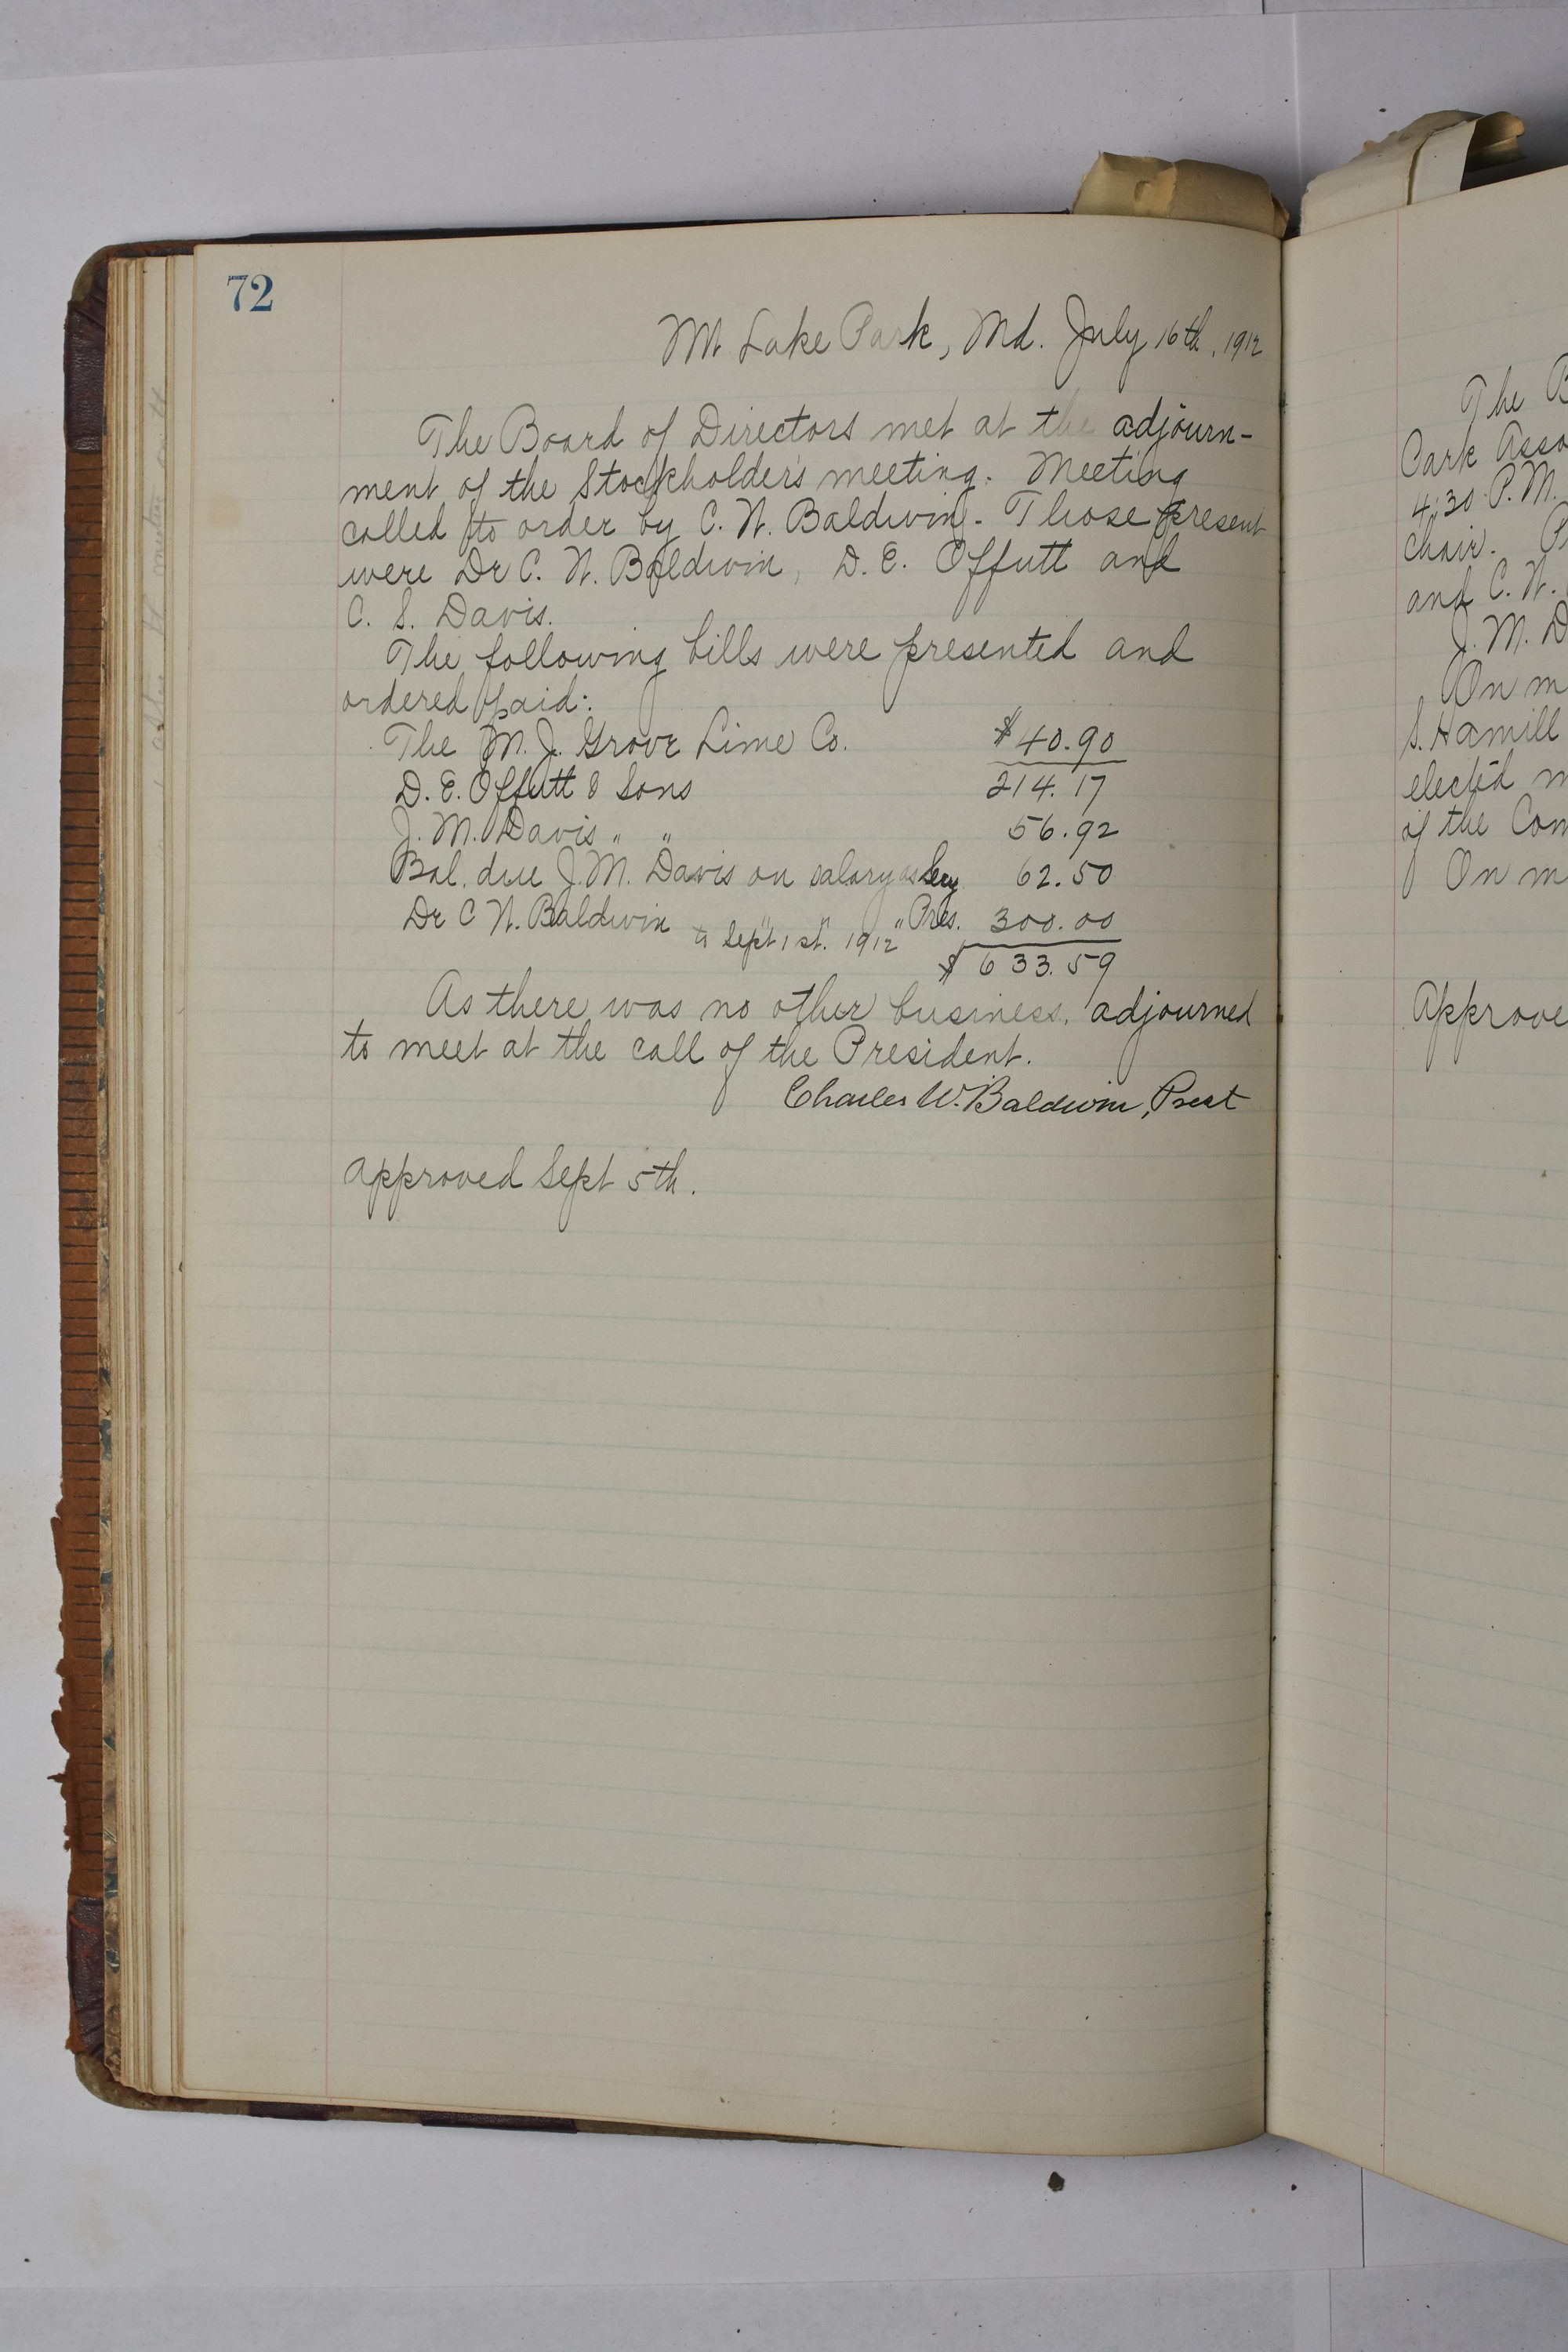 72
Mt. Lake Park, Md. July 16th, 1912
The Board of Directors met at the adjourn-
ment of the Stockholder's meeting. Meeting
called to order by C. W. Baldwin. Those present
were Dr C. W. Baldwin, D. E. Offutt and
C. S. Davis.
The following bills were presented and
ordered paid:
The M. J. Grove Lime Co. $40.90
D. E. Offutt & Sons 214.17
J. M. Davis " " 56.92
Bal. due J. M. Davis on salary as Secy 62.50
Dr C W. Baldwin " " " Pres. 300.00
to Sept 1st. 1912 $633.59
As there was no other business, adjourned
to meet at the call of the President.
Charles W. Baldwin, Prest
approved Sept 5th.
The B
Park Asso
4:30 P.M.
Chair. P
and C. W.
J. M. D
On m
S. Hamill
elected m
of the Com
On m
Approve